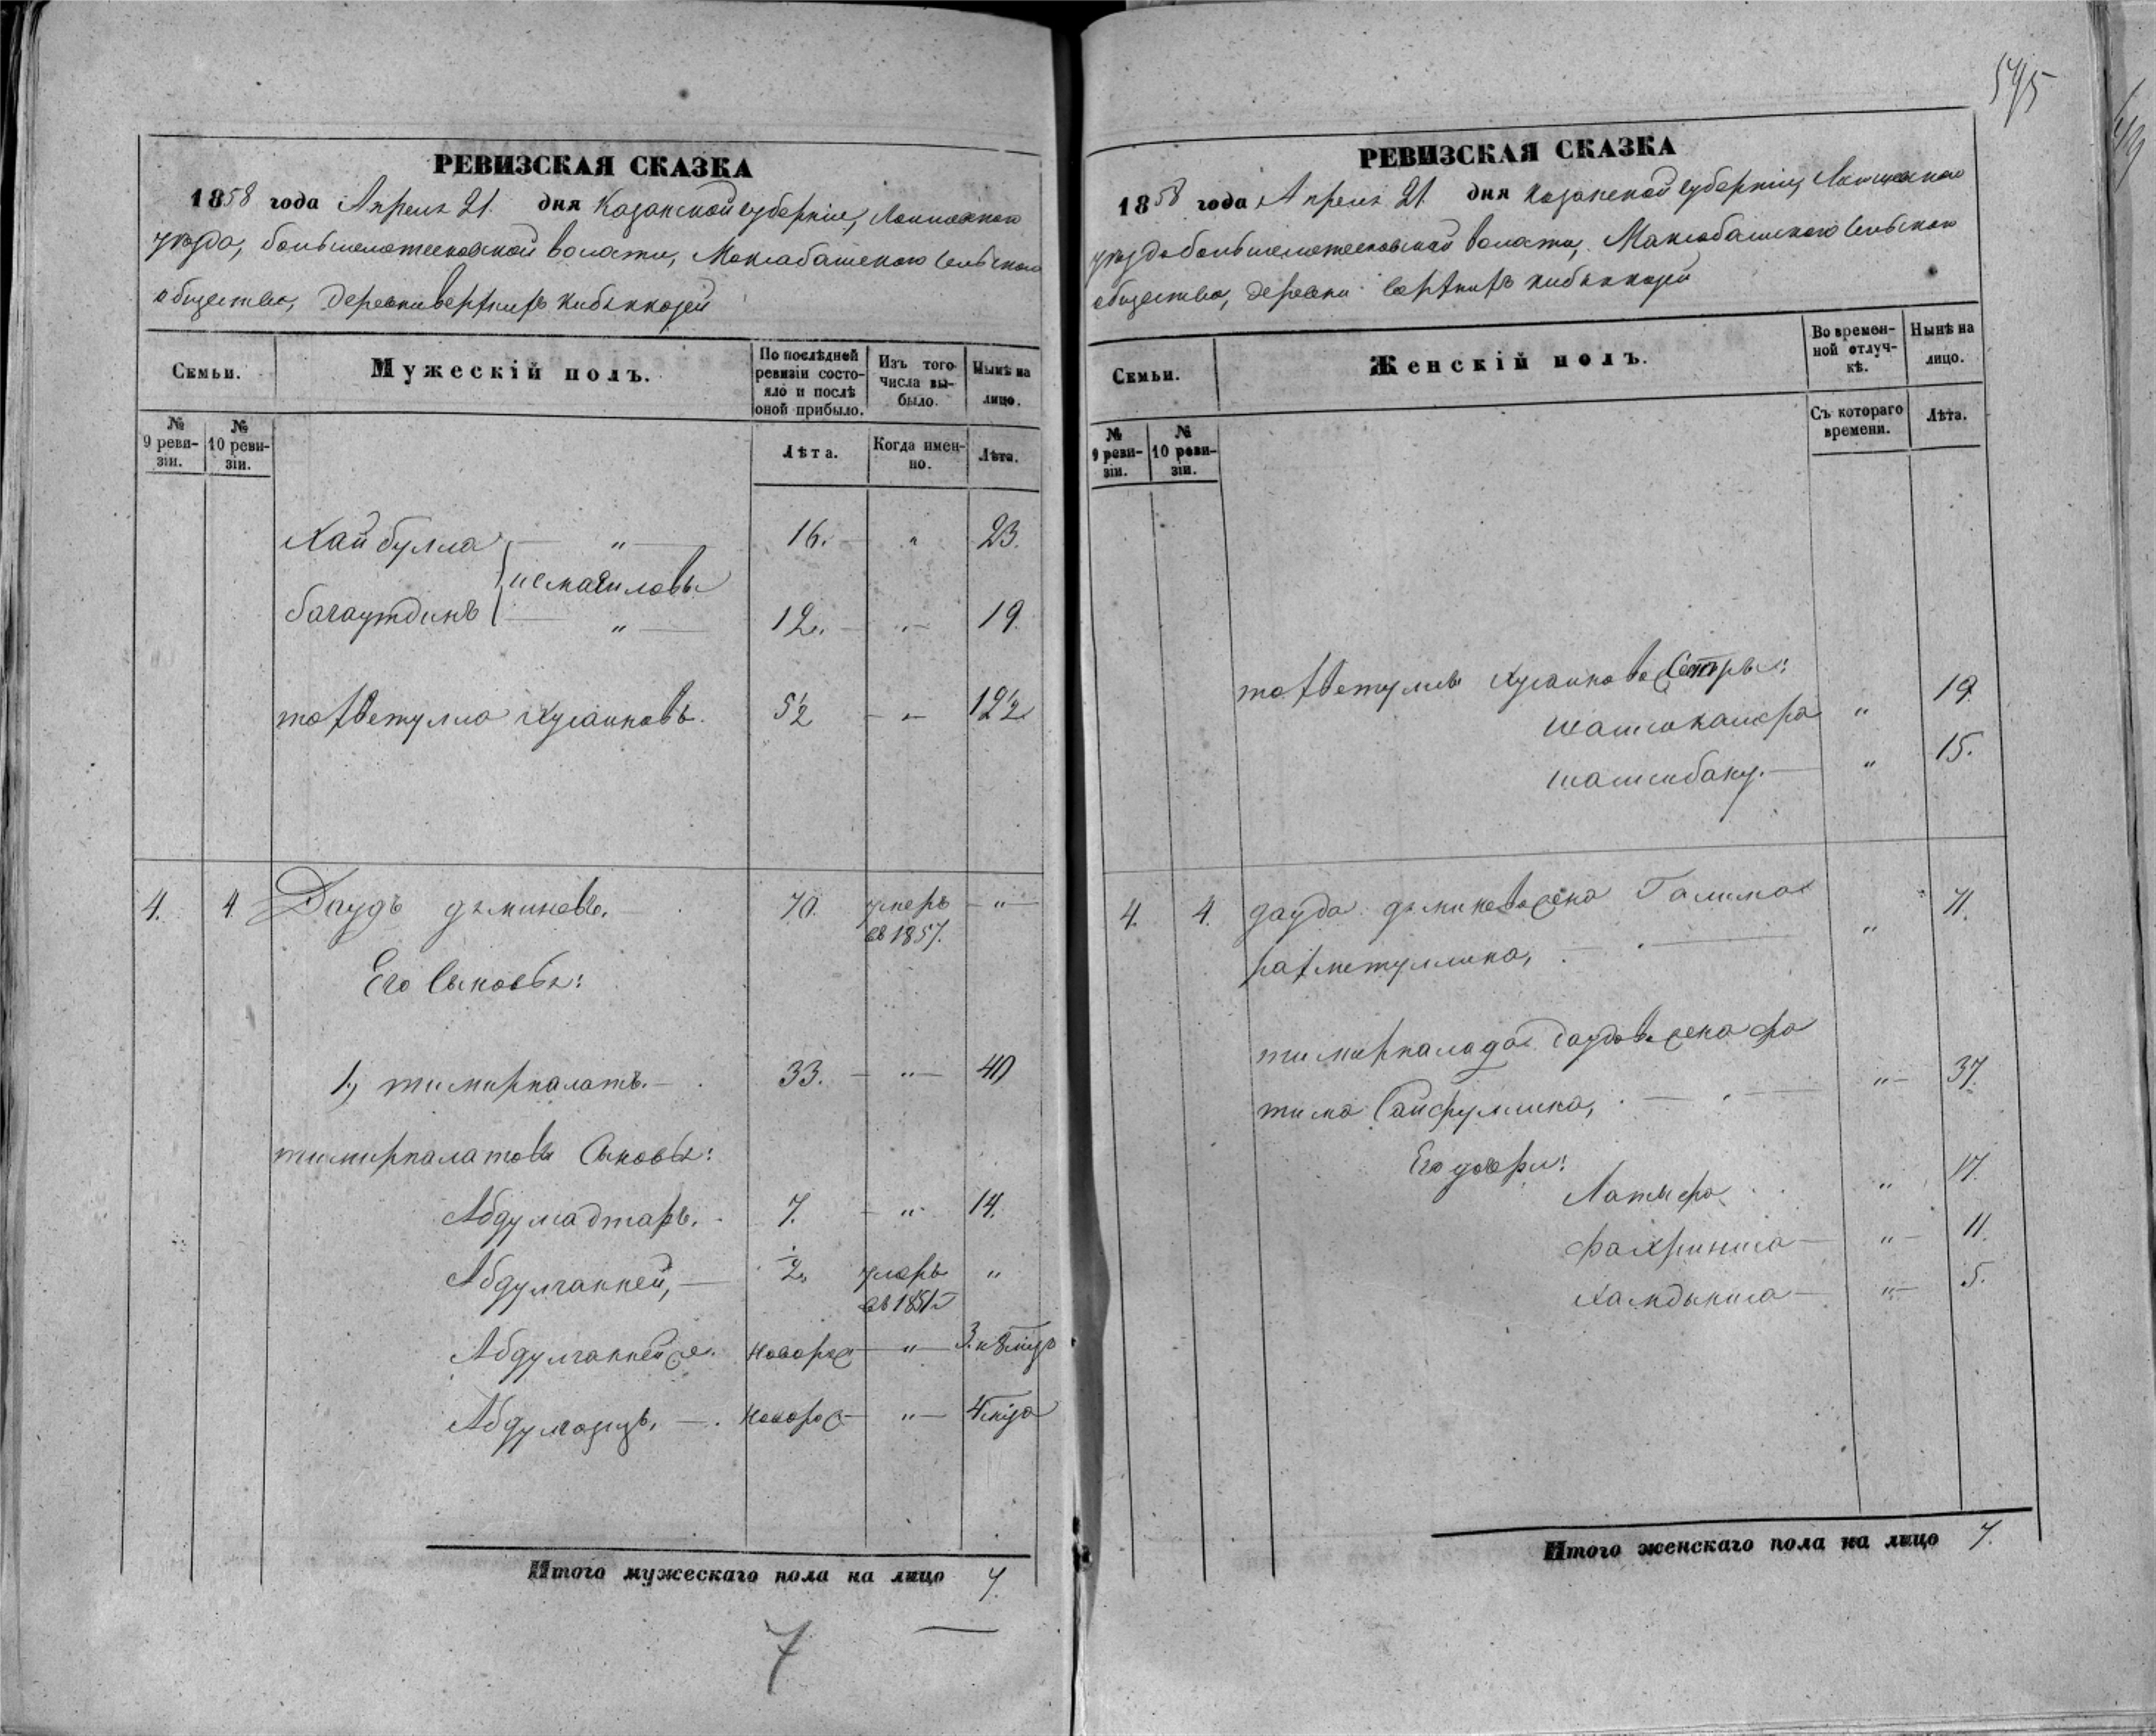 595
РЕВИЗСКАЯ СКАЗКА
1858 года Апреля 21. дня Казанской губернии, Лаишевскаго
уезда, большеметесковской волости, Маклабашскаго сельскаго
общества, деревни верхнихъ кибяккозей
Семьи.
Мужескій полъ.
По послѣдней ревизіи состояло и послѣ оной прибыло.
Изъ того числа выбыло.
Нынѣ на лицо.
№ 9 ревизіи.
№ 10 ревизіи.
Лѣта.
Когда именно.
Лѣта.
Хайбулла — „ — 16. — „ 23.
исмагиловы
багаутдинъ — „ — 12. — „ — 19.
тохветулла хусаиновъ. 5½ — „ — 12½
4. 4. Даудъ 70. умеръ — „ —
въ 1857.
Его сыновья:
1, тимирпалатъ. — 33. — „ — 40
тимирпалатовы сыновья:
7. — „ 14.
Абдулганней, — ½ умеръ „
въ 1851
Абдулганней 2й. новорж — „ — 3. и 8 мцъ
Абдулазизъ. — новорож — „ — 4 мца
Итого мужескаго пола на лицо 7.
7
РЕВИЗСКАЯ СКАЗКА
1858 года Апреля 21. дня Казанской губерніи, Лаишевскаго
уезда большеметесковской волости, Маклабашскаго сельскаго
общества, деревни верхнихъ кибяккозей
Семьи.
Женскій полъ.
Во временной отлучкѣ.
Нынѣ на лицо.
№ 9 ревизіи.
№ 10 ревизіи.
Съ котораго времени.
Лѣта.
тохветуллы хусаинова Сестры:
„ 19.
„ 15.
4. 4. дауда жена Галима
рахметуллина, „ 71.
тимирпалада даудова жена фа
тима Сайфуллина, „ — 37.
Его дочери:
Латыфа „ 17.
Фахриниса — „ — 11.
Хамдыниса — „ — 5.
Итого женскаго пола на лицо 7.